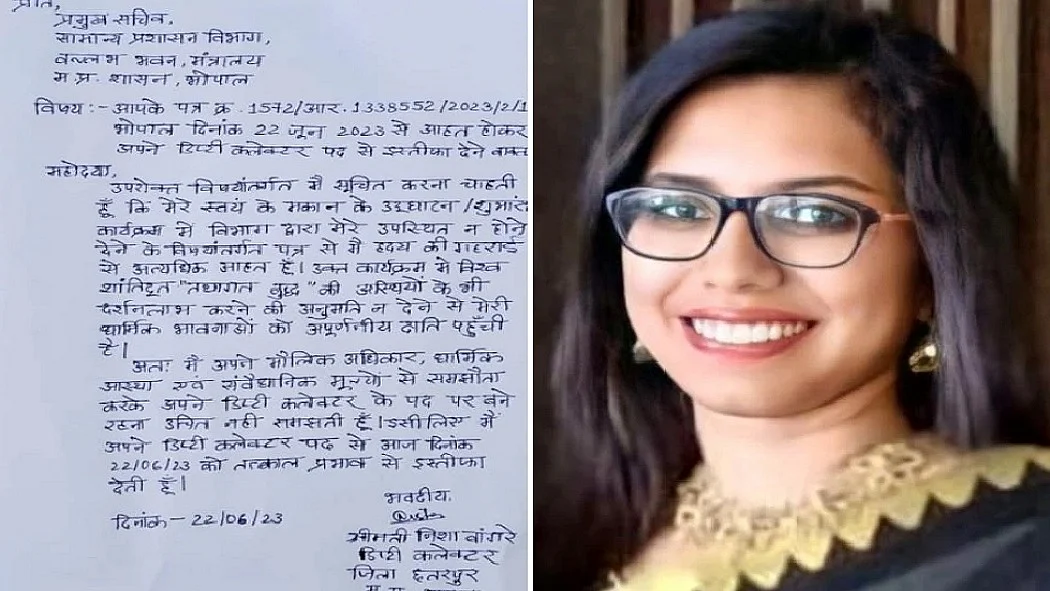 प्रति,
प्रमुख सचिव,
सामान्य प्रशासन विभाग,
वल्लभ भवन, मंत्रालय
म.प्र. शासन, भोपाल
विषय :- आपके पत्र क्र. 1572/आर. 1338552/2023/2/1
भोपाल दिनांक 22 जून 2023 से आहत होकर
अपने डिप्टी कलेक्टर पद से इस्तीफा देने बाबत
महोदया,
उपरोक्त विषयांतर्गत मैं सूचित करना चाहती
हूँ कि मेरे स्वयं के मकान के उद्घाटन /शुभारं
कार्यक्रम में विभाग द्वारा मेरे उपस्थित न होने
देने के विषयांतर्गत पत्र से मैं हृदय की गहराई
से अत्यधिक आहत हूँ। उक्त कार्यक्रम में विश्व
शांतिदूत "तथागत बुद्ध" की अस्थियों के भी
दर्शनलाभ करने की अनुमति न देने से मेरी
धार्मिक भावनाओं को अपूर्णनीय क्षति पहुँची
है।
अतः मैं अपने मौलिक अधिकार, धार्मिक
आस्था एवं संवैधानिक मूल्यों से समझौता
करके अपने डिप्टी कलेक्टर के पद पर बने
रहना उचित नहीं समझती हूँ। इसीलिए मैं
अपने डिप्टी कलेक्टर पद से आज दिनांक
22/06/23 को तत्काल प्रभाव से इस्तीफा
देती हूँ।
भवदीय.
दिनांक - 22/06/23
श्रीमती निशा बांगरे
डिप्टी कलेक्टर
जिला छतरपुर